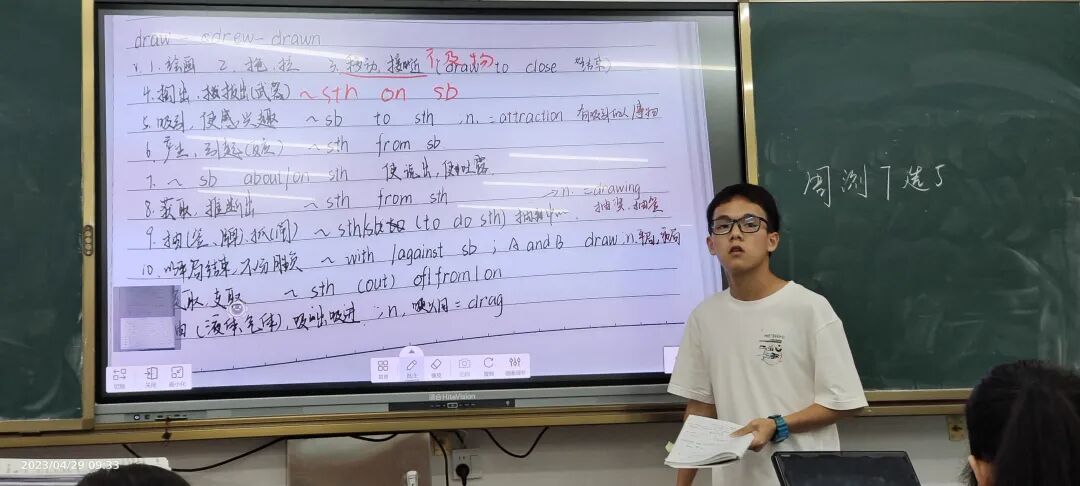 draw - drew - drawn
v. 1. 绘画 2. 拖,拉 3. 移动,接近 (draw to close 结束)
不及物
4. 掏出,拔出(武器) ~ sth on sb
5. 吸引,使感兴趣 ~ sb to sth ; n. = attraction 有吸引的人/事物
6. 产生,引起(反应) ~ sth from sb
7. ~ sb about/on sth 使说出,使吐露
8. 获取,推断出 ~ sth from sth
→ n. = drawing
9. 抽(签、牌),抓(阄) ~ sth/sb (to do sth) 抽奖,抽签
10. 以平局结束,不分胜负 ~ with / against sb ; A and B draw ; n. 平局
取,支取 ~ sth (out) of / from / on
(液体,气体),吸出吸进 ; n. = drag
批注
最小化
关闭
HiteVision
周测7选5
2023/04/29 09:33